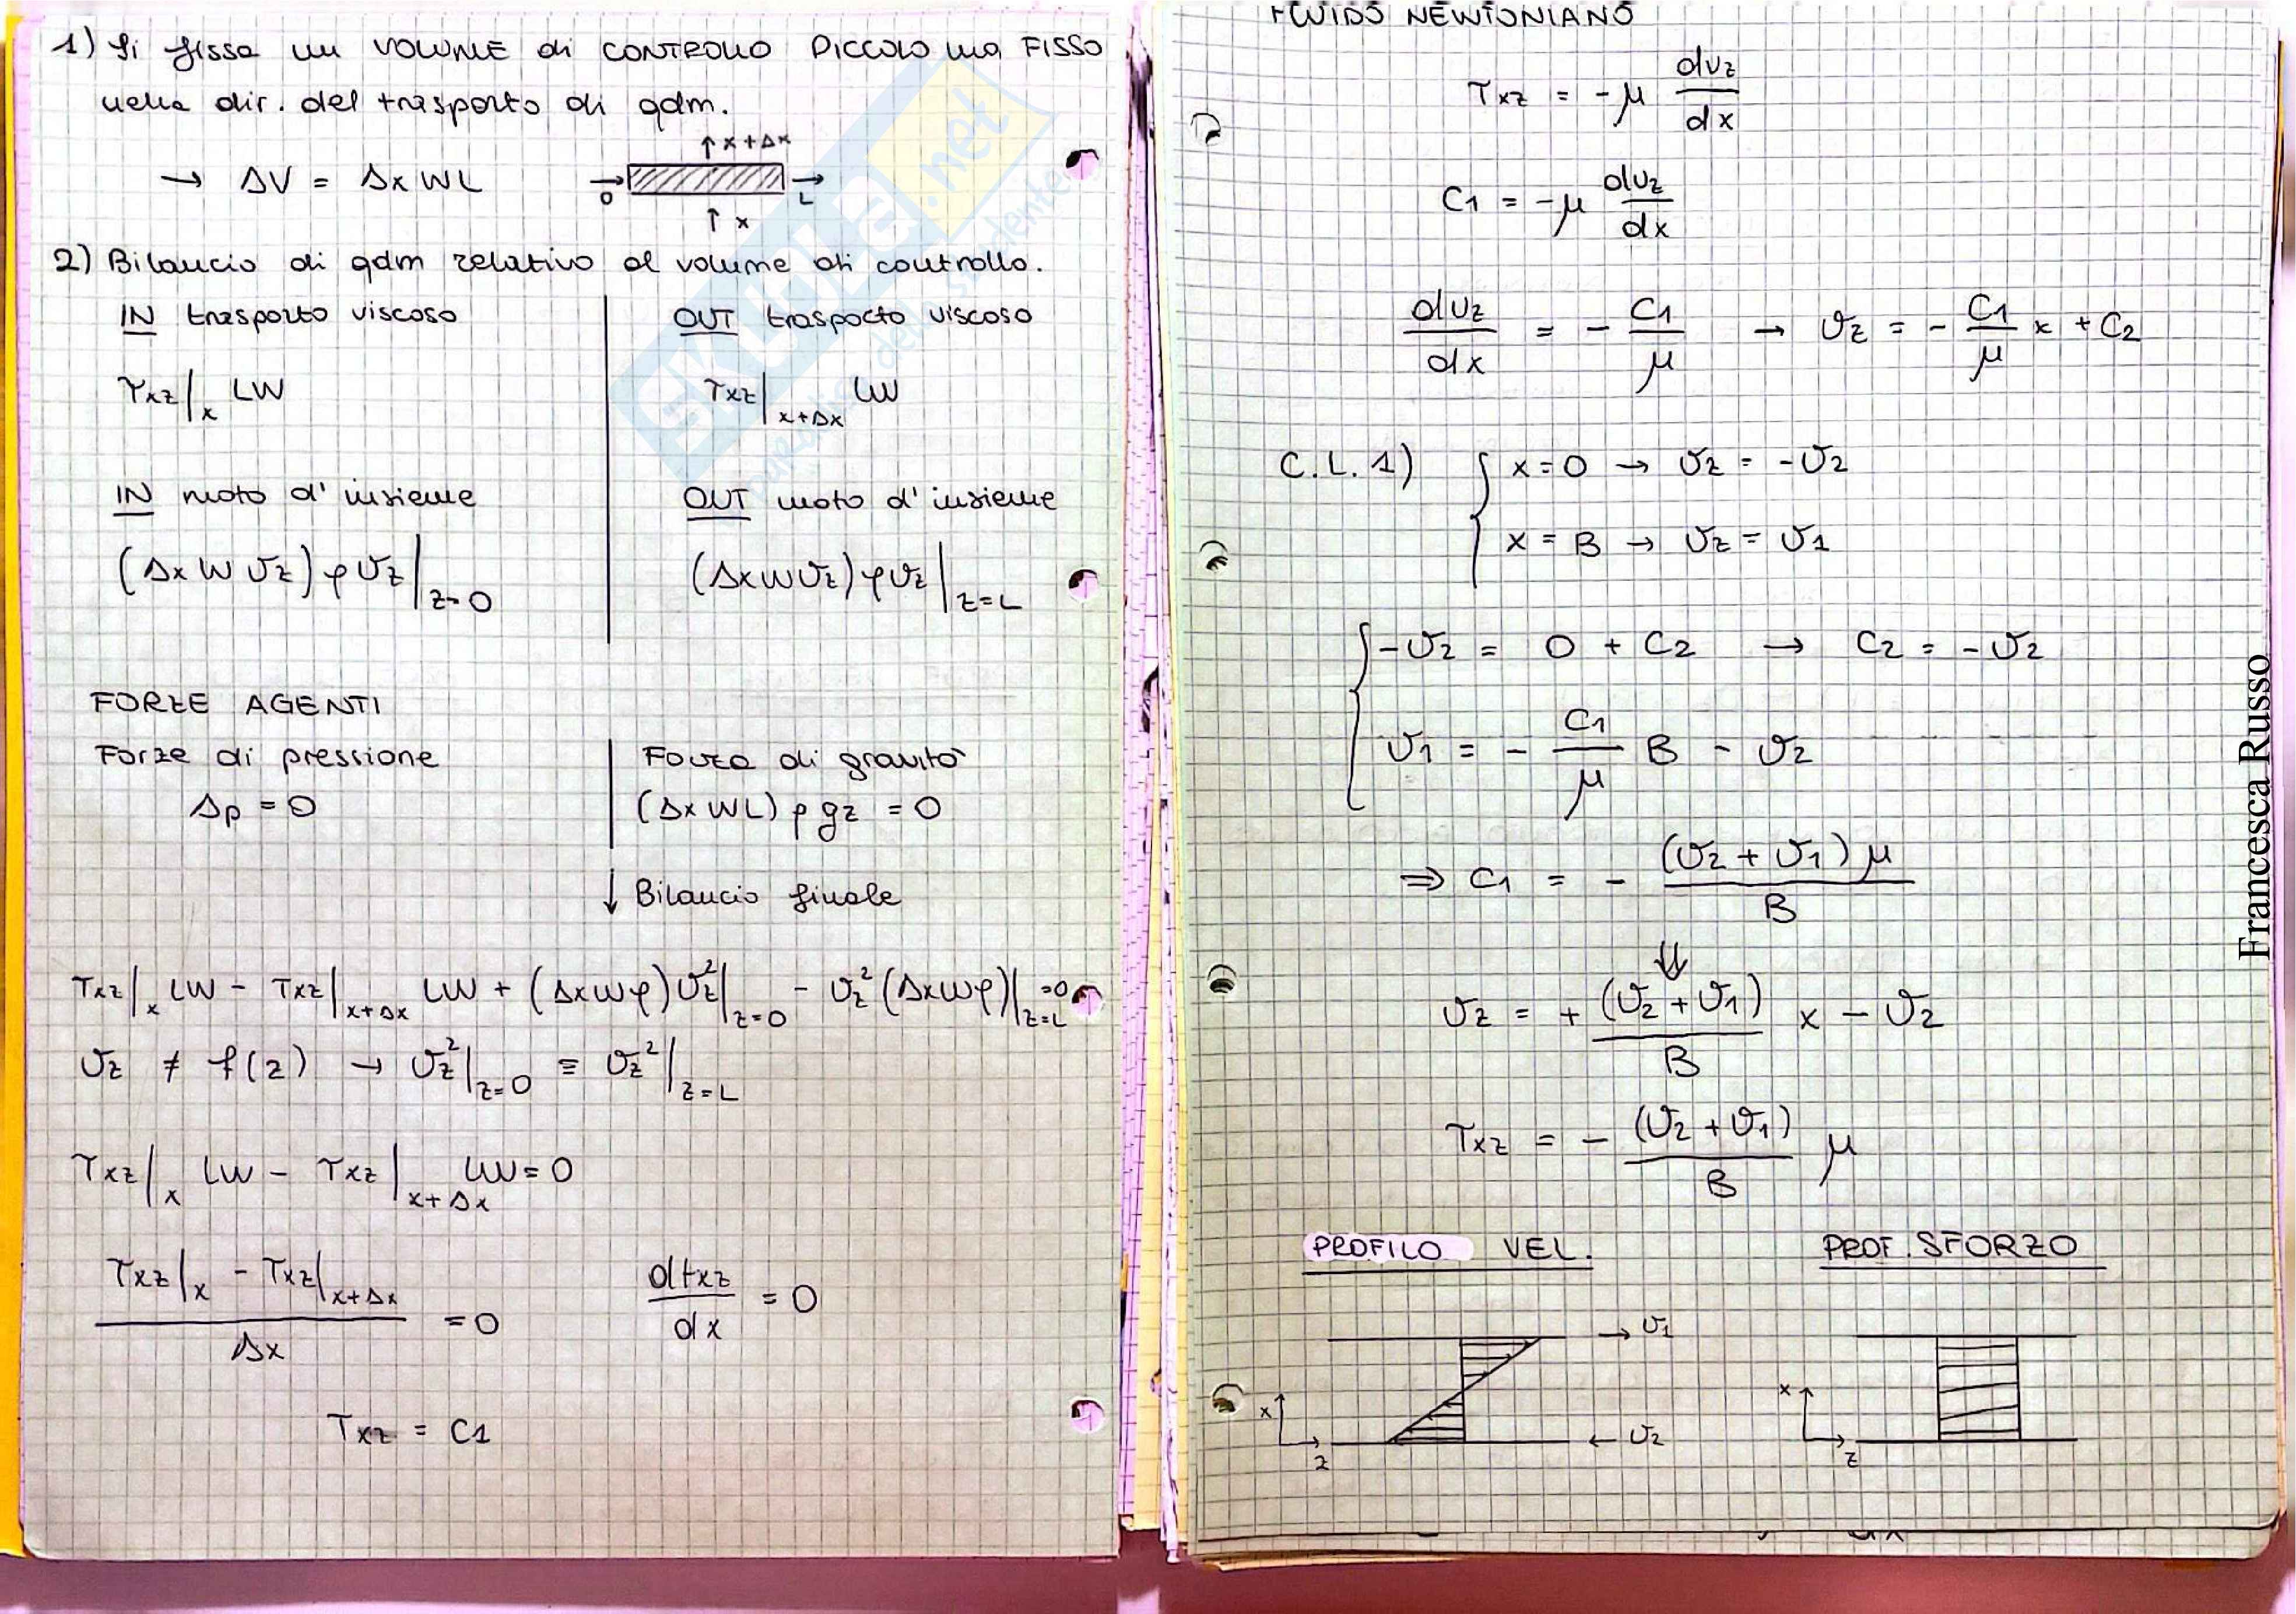 1) Si fissa un VOLUME di CONTROLLO PICCOLO ma FISSO
nella dir. del trasporto di qdm.
→ ΔV = Δx WL
↑ x+Δx
→ 0 → L
↑ x
2) Bilancio di qdm relativo al volume di controllo.
IN trasporto viscoso
τxz|x LW
IN moto d'insieme
(Δx W vz) ρ vz|z=0
OUT trasporto viscoso
τxz|x+Δx LW
OUT moto d'insieme
(Δx W vz) ρ vz|z=L
FORZE AGENTI
Forze di pressione
Δp = 0
Forza di gravità
(Δx WL) ρ gz = 0
↓ Bilancio finale
τxz|x LW - τxz|x+Δx LW + (Δx W ρ) vz²|z=0 - vz² (Δx W ρ)|z=L = 0
vz ≠ f(z) → vz²|z=0 ≡ vz²|z=L
τxz|x LW - τxz|x+Δx LW = 0
(τxz|x - τxz|x+Δx) / Δx = 0
dτxz/dx = 0
τxz = C1
FLUIDO NEWTONIANO
τxz = -μ dvz/dx
C1 = -μ dvz/dx
dvz/dx = - C1/μ → vz = - C1/μ x + C2
C.L. 1) { x = 0 → vz = -v2
x = B → vz = v1
{ -v2 = 0 + C2 → C2 = -v2
v1 = - C1/μ B - v2
⇒ C1 = - (v2 + v1) μ / B
⇓
vz = + (v2 + v1)/B x - v2
τxz = - (v2 + v1)/B μ
PROFILO VEL.
→ v1
x
z
← v2
PROF. SFORZO
x
z
Francesca Russo
SKUOLA.net